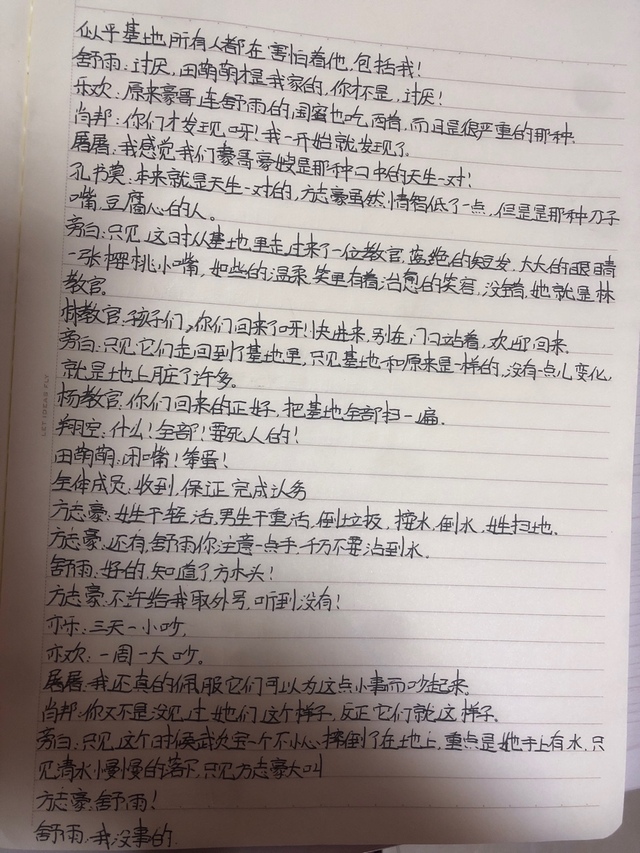 似乎基地所有人都在害怕着他,包括我!
舒雨:讨厌,田萌萌才是我家的,你才不是,讨厌!
乐欢:原来豪哥连舒雨的闺蜜也吃,两酋,而且是很严重的那种.
尚邦:你们才发现呀!我一开始就发现了.
屠屠:我感觉我们豪哥豪嫂是那种口中的天生一对!
孔书莫:本来就是天生一对的,方志豪虽然情智低了一点,但是是那种刀子
嘴,豆腐心的人。
旁白:只见,这时从基地里走过来了一位教官,蓝绝的短发,大大的眼睛
一张樱桃小嘴,如些的温柔,笑里有着治愈的笑容,没错,她就是林
教官.
林教官:孩子们,你们回来了呀!快进来,别在门口站着,欢迎回来.
旁白:只见它们走回到了基地里,只见基地和原来是一样的,没有一点儿变化,
就是地上脏了许多。
杨教官:你们回来的正好,把基地全部扫一遍.
翔空:什么!全部!要死人的!
田萌萌:闭嘴!笨蛋!
全体成员:收到,保证完成认务
方志豪:女生干轻活,男生干重活,倒垃圾,接水,倒水,女生扫地.
方志豪:还有,舒雨你注意一点手,千万不要沾到水.
舒雨:好的,知道了方木头!
方志豪:不许给我取外号,听到没有!
亦乐:三天一小吵,
亦欢:一周一大吵。
屠屠:我还真的佩服它们可以为这点小事而吵起来.
尚邦:你又不是没见过她们这个样子,反正它们就这样子.
旁白:只见,这个时侯武次宝一个不小心摔倒了在地上,重点是她手上有水,只
见清水慢慢的落下,只见方志豪大叫
方志豪:舒雨!
舒雨:我没事的